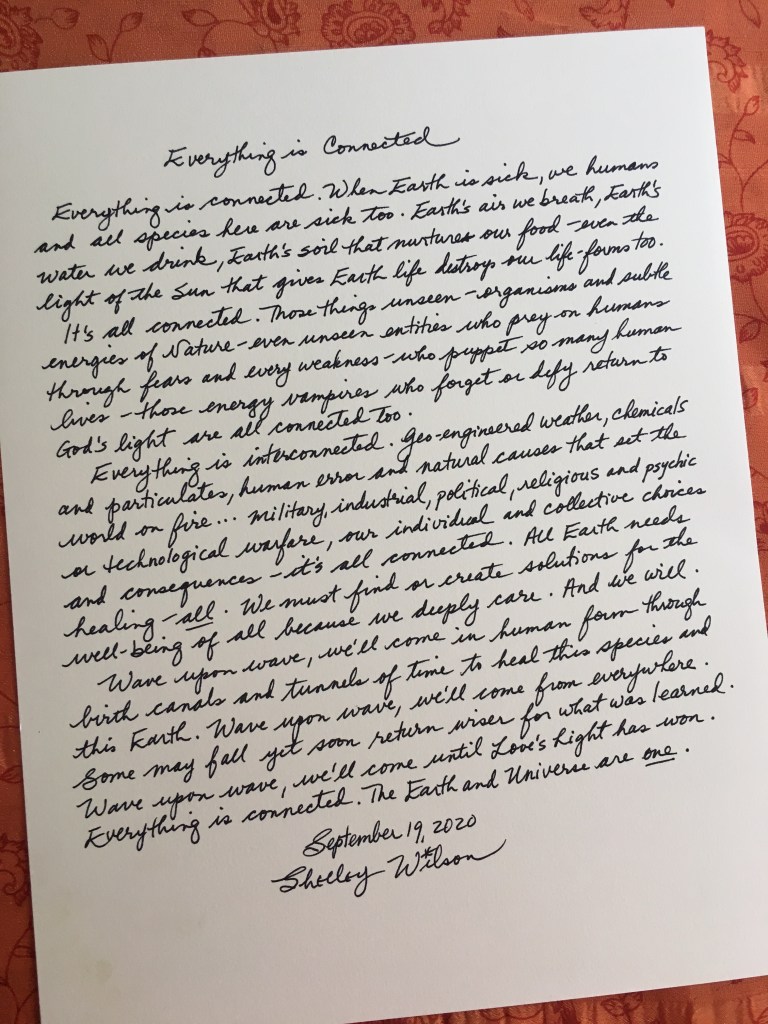 Everything is Connected
Everything is connected. When Earth is sick, we humans
and all species here are sick too. Earth's air we breath, Earth's
water we drink, Earth's soil that nurtures our food – even the
light of the Sun that gives Earth life destroys our life-forms too.
It's all connected. Those things unseen – organisms and subtle
energies of Nature – even unseen entities who prey on humans
through fears and every weakness – who puppet so many human
lives – those energy vampires who forget or defy return to
God's light are all connected too.
Everything is interconnected. Geo-engineered weather, chemicals
and particulates, human error and natural causes that set the
world on fire... military, industrial, political, religious and psychic
or technological warfare, our individual and collective choices
and consequences – it's all connected. All Earth needs
healing – all. We must find or create solutions for the
well-being of all because we deeply care. And we will.
Wave upon wave, we'll come in human form through
birth canals and tunnels of time to heal this species and
this Earth. Wave upon wave, we'll come from everywhere.
Some may fall yet soon return wiser for what was learned.
Wave upon wave, we'll come until Love's Light has won.
Everything is connected. The Earth and Universe are one.
September 19, 2020
Shelley Wilson